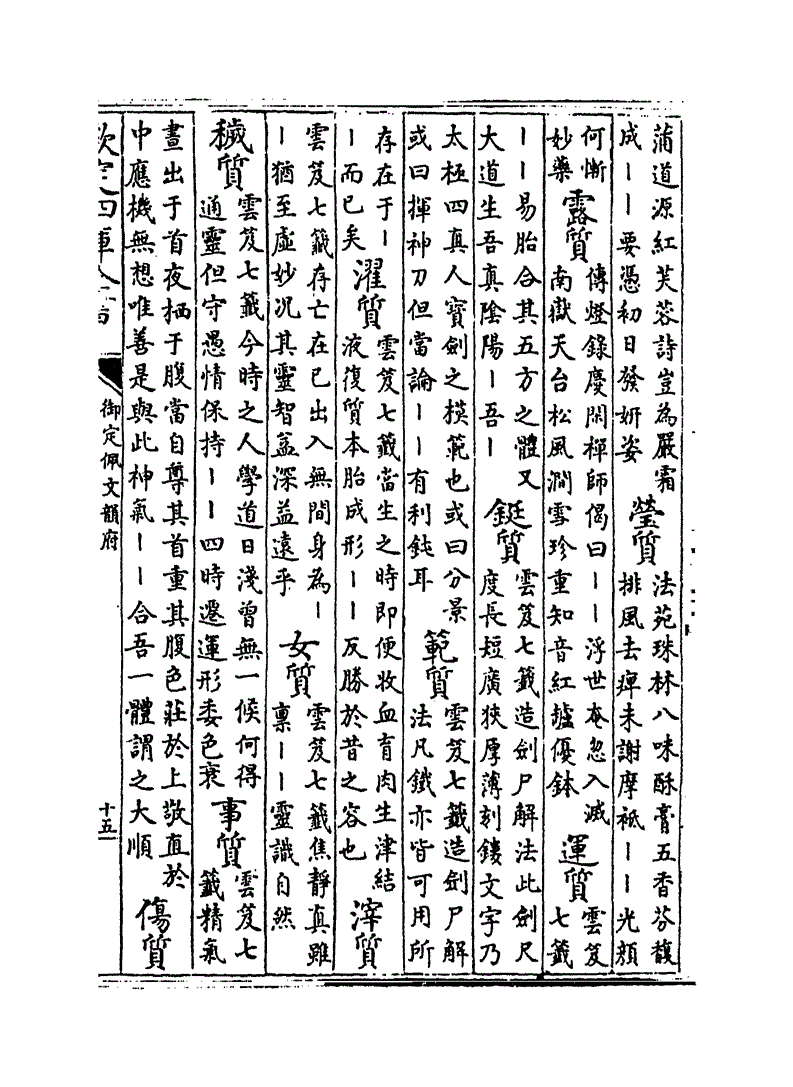 蒲道源紅芙蓉詩豈為嚴霜成丨丨要憑初日發妍姿 瑩質 法苑珠林八味酥膏五香芬馥排風去痺未謝摩祇丨丨光顔
何慚妙藥 露質 傳燈錄慶閑禪師偈曰丨丨浮世奄忽入滅南嶽天台松風澗雪珍重知音紅爐優鉢 運質 雲笈七籤
丨丨易胎合其五方之體又大道生吾真陰陽丨吾丨 鋌質 雲笈七籤造劍尸解法此劍尺度長短廣狹厚薄刻鏤文字乃
太極四真人寶劍之模範也或曰分景或曰揮神刀但當論丨丨有利鈍耳 範質 雲笈七籤造劍尸解法凡鐵亦皆可用所
存在于丨丨而已矣 濯質 雲笈七籤當生之時即便收血育肉生津結液復質本胎成形丨丨反勝於昔之容也 滓質
雲笈七籤存亡在已出入無間身為丨丨猶至虛妙况其靈智益深益遠乎 女質 雲笈七籤焦靜真雖禀丨丨靈識自然
穢質 雲笈七籤今時之人學道日淺曾無一候何得通靈但守愚情保持丨丨四時遷運形委色衰 事質 雲笈七籤精氣
晝出于首夜栖于腹當自尊其首重其腹色莊於上敬直於中應機無想唯善是與此神氣丨丨合吾一體謂之大順 傷質
欽定四庫全書
御定佩文韻府
十五